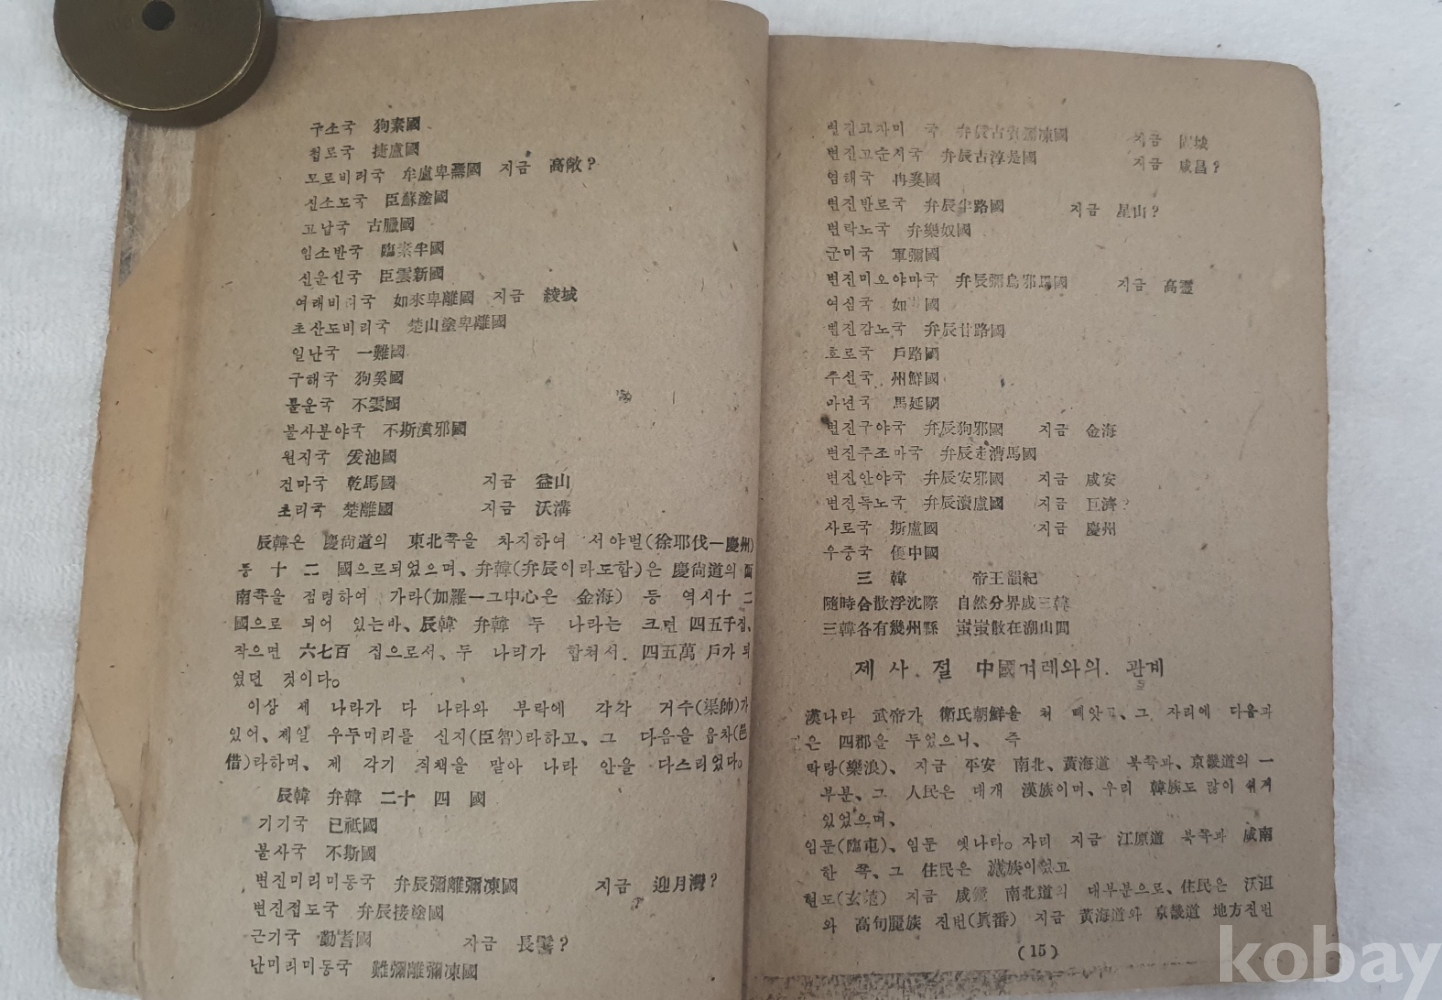 구소국 狗素國
첩로국 捷盧國
모로비리국 牟盧卑離國 지금 高敞?
신소도국 臣蘇塗國
고납국 古臘國
임소반국 臨素半國
신운신국 臣雲新國
여래비리국 如來卑離國 지금 綾城
초산도비리국 楚山塗卑離國
일난국 一難國
구해국 狗奚國
불운국 不雲國
불사분야국 不斯濆邪國
원지국 爰池國
건마국 乾馬國 지금 益山
초리국 楚離國 지금 沃溝
辰韓은 慶尙道의 東北쪽을 차지하여 서야벌(徐耶伐—慶州)
등 十二 國으로되었으며、弁韓(弁辰이라도함)은 慶尙道의 西
南쪽을 점령하여 가라(加羅—그中心은 金海) 등 역시十二
國으로 되어 있는바、辰韓 弁韓 두 나라는 크면 四五千집、
작으면 六七百 집으로서、두 나라가 합쳐서 四五萬 戶가 되
였던 것이다。
이상 세 나라가 다 나라와 부락에 각각 거수(渠帥)가
있어、제일 우두머리를 신지(臣智)라하고、그 다음을 읍차(邑
借)라하며、제 각기 직책을 맡아 나라 안을 다스리었다。
辰韓 弁韓 二十四 國
기기국 已祇國
불사국 不斯國
변진미리미동국 弁辰彌離彌凍國 지금 迎月灣?
변진접도국 弁辰接塗國
근기국 勤耆國 지금 長鬐?
난미리미동국 難彌離彌凍國
변진고자미 국 弁辰古資彌凍國 지금 固城
변진고순시국 弁辰古淳是國 지금 咸昌?
염해국 冉奚國
변진반로국 弁辰半路國 지금 星山?
변락노국 弁樂奴國
군미국 軍彌國
변진미오야마국 弁辰彌烏邪馬國 지금 高靈
여심국 如 國
변진감노국 弁辰甘路國
호로국 戶路國
주선국 州鮮國
마년국 馬延國
변진구야국 弁辰狗邪國 지금 金海
변진주조마국 弁辰走漕馬國
변진안야국 弁辰安邪國 지금 咸安
변진독노국 弁辰瀆盧國 지금 巨濟?
사로국 斯盧國 지금 慶州
우중국 優中國
三 韓 帝王韻紀
隨時合散浮沈際 自然分界成三韓
三韓各有幾州縣 蚩蚩散在湖山間
제 사 절 中國겨레와의 관계
漢나라 武帝가 衛氏朝鮮을 쳐 빼앗고、그 자리에 다음과
같은 四郡을 두었으니、즉
락랑(樂浪)、지금 平安 南北、黃海道 북쪽과、京畿道의 一
부분、그 人民은 대개 漢族이며、우리 韓族도 많이 섞여
있었으며、
임둔(臨屯)、임둔 옛나라。자리 지금 江原道 북쪽과 咸南
한 쪽、그 住民은 濊族이였고
현도(玄菟) 지금 咸鏡 南北道의 대부분으로、住民은 沃沮
와 高句麗族 진번(眞番) 지금 黃海道와 京畿道 地方진번
(15)
kobay